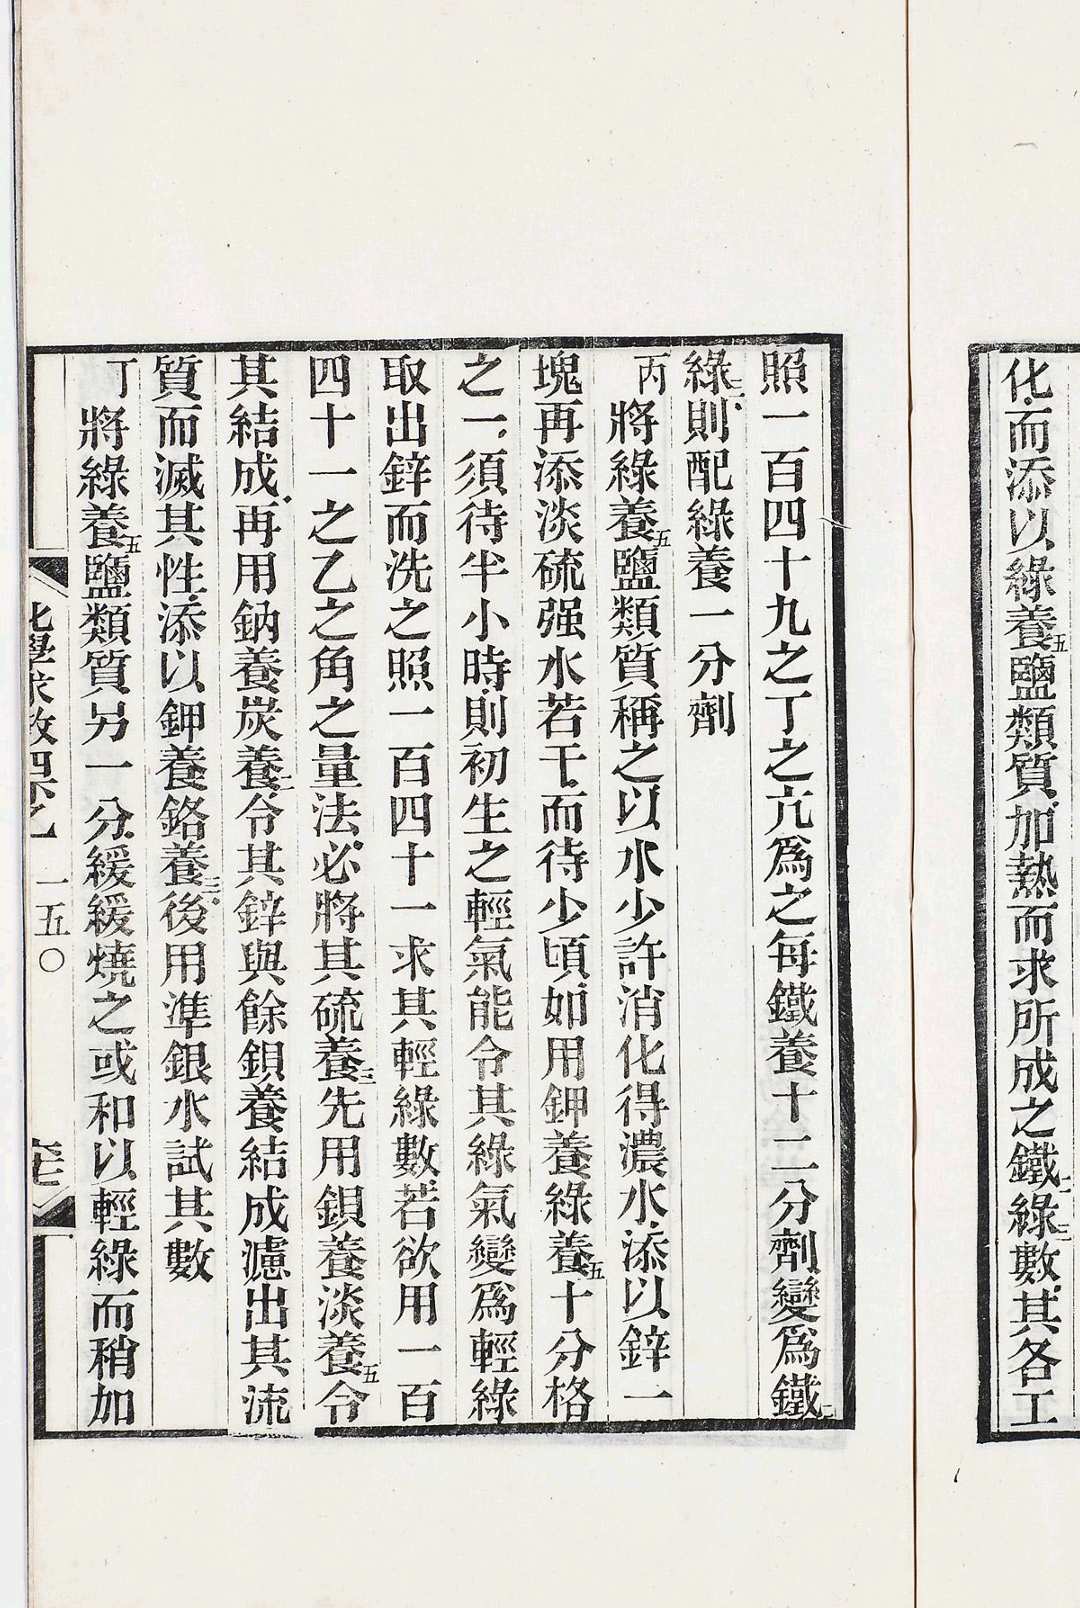 化而添以綠養五鹽類質加熱而求所成之鐵二綠三數其各工
照一百四十九之丁之亢爲之每鐵養十二分劑變爲鐵二
綠三則配綠養一分劑
丙　將綠養五鹽類質稱之以水少許消化得濃水添以鋅一
塊再添淡硫强水若干而待少頃如用鉀養綠養五十分格
之一須待半小時則初生之輕氣能令其綠氣變爲輕綠
取出鋅而洗之照一百四十一求其輕綠數若欲用一百
四十一之乙之角之量法必將其硫養三先用鋇養淡養五令
其結成再用鈉養炭養二令其鋅與餘鋇養結成濾出其流
質而滅其性添以鉀養鉻養三後用準銀水試其數
丁　將綠養五鹽類質另一分緩緩燒之或和以輕綠而稍加
化學求數
一五〇